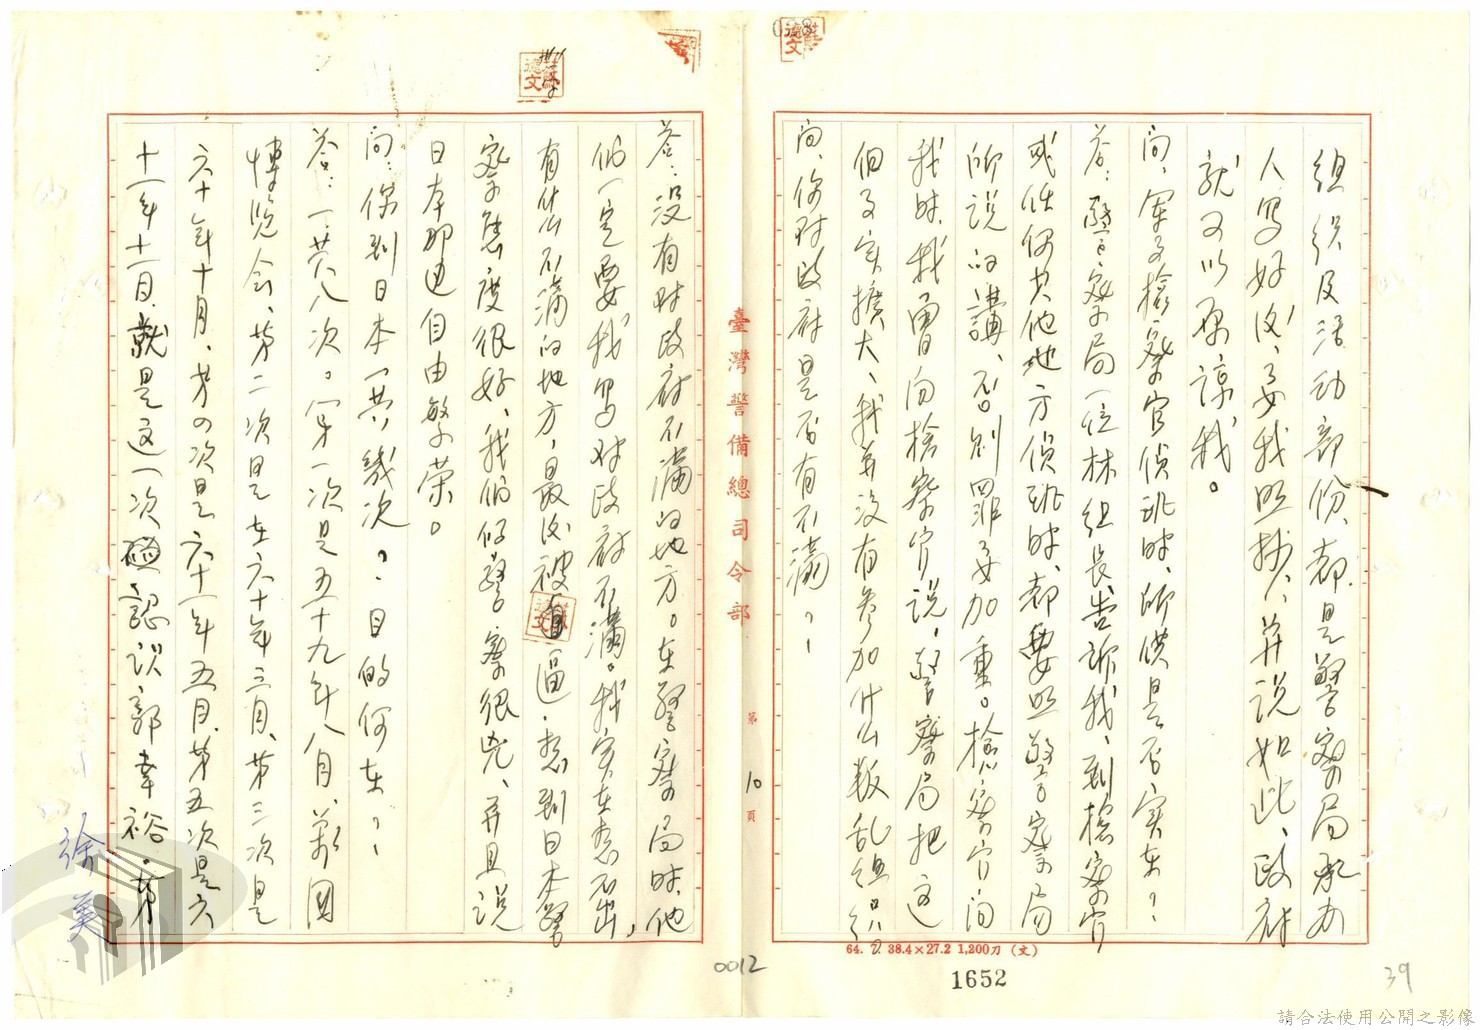 組织及活动部份、都是警察局承办
人写好後、要我照抄、并说如此、政府
就可以原諒我。
问、軍事檢察官偵訊時、所供是否实在？
答：警察局一位林组長告訴我、到檢察官
或任何其他地方偵訊時、都要照警察局
所说的講、否则罪要加重。檢察官问
我時、我曾向檢察官说、警察局把这
個事实擴大、我并没有参加什么叛乱组织
问、你对政府是否有不滿？
答：没有对政府不滿的地方。在警察局時、他
们一定要我写对政府不滿。我实在想不出，
有什么不滿的地方，最後被逼，想到日本警
察態度很好、我们的警察很兇、并且说
日本那边自由繁荣。
问：你到日本一共幾次？目的何在？
答：一共八次。第一次是五十九年八月、萬国
博览会、第二次是在六十年三月、第三次是
六十年十月、第四次是六十一年五月、第五次是六
十一年十一月、就是这一次認识郭幸裕、第
徐美
臺灣警備總司令部
第10頁
64. 7. 38.4×27.2 1,200刀（文）
0012
1652
39
請合法使用公開之影像